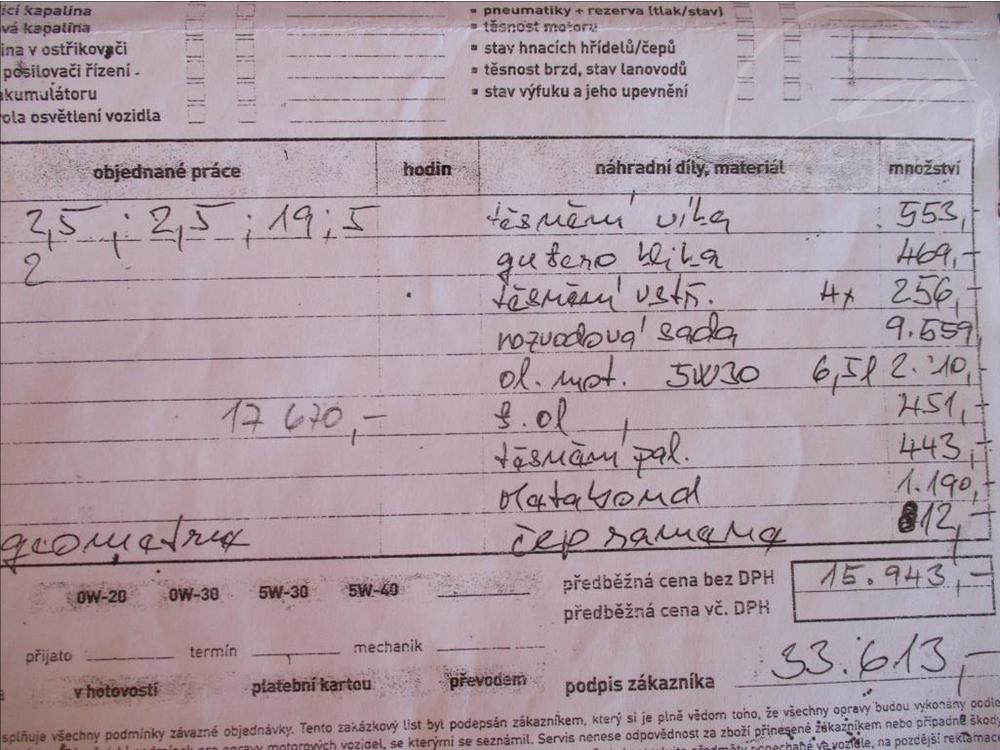 icí kapalina
vá kapalina
ina v ostřikovači
posilovači řízení
akumulátoru
ola osvětlení vozidla
pneumatiky + rezerva (tlak/stav)
těsnost motoru
stav hnacích hřídelů/čepů
těsnost brzd, stav lanovodů
stav výfuku a jeho upevnění
objednané práce hodin náhradní díly, materiál množství
2,5 ; 2,5 ; 19 ; 5 těsnění víka 553,-
2 469,-
těsnění vstř. 4x 256,-
rozvodová sada 9.559
ol. mot. 5W30 6,5l 2.210,-
17 670,- f. ol 451,-
těsnění pal. 443,-
1.190,-
geometrie čep ramena 812,-
0W-20 0W-30 5W-30 5W-40
předběžná cena bez DPH 15.943,-
předběžná cena vč. DPH
přijato termín mechanik
33.613,-
v hotovosti platební kartou převodem podpis zákazníka
splňuje všechny podmínky závazné objednávky. Tento zakázkový list byl podepsán zákazníkem, který si je plně vědom toho, že všechny opravy budou vykonány podle
motorových vozidel, se kterými se seznámil. Servis nenese odpovědnost za zboží přinesené zákazníkem nebo případné škody
ve vozidle, na pozdější reklamac